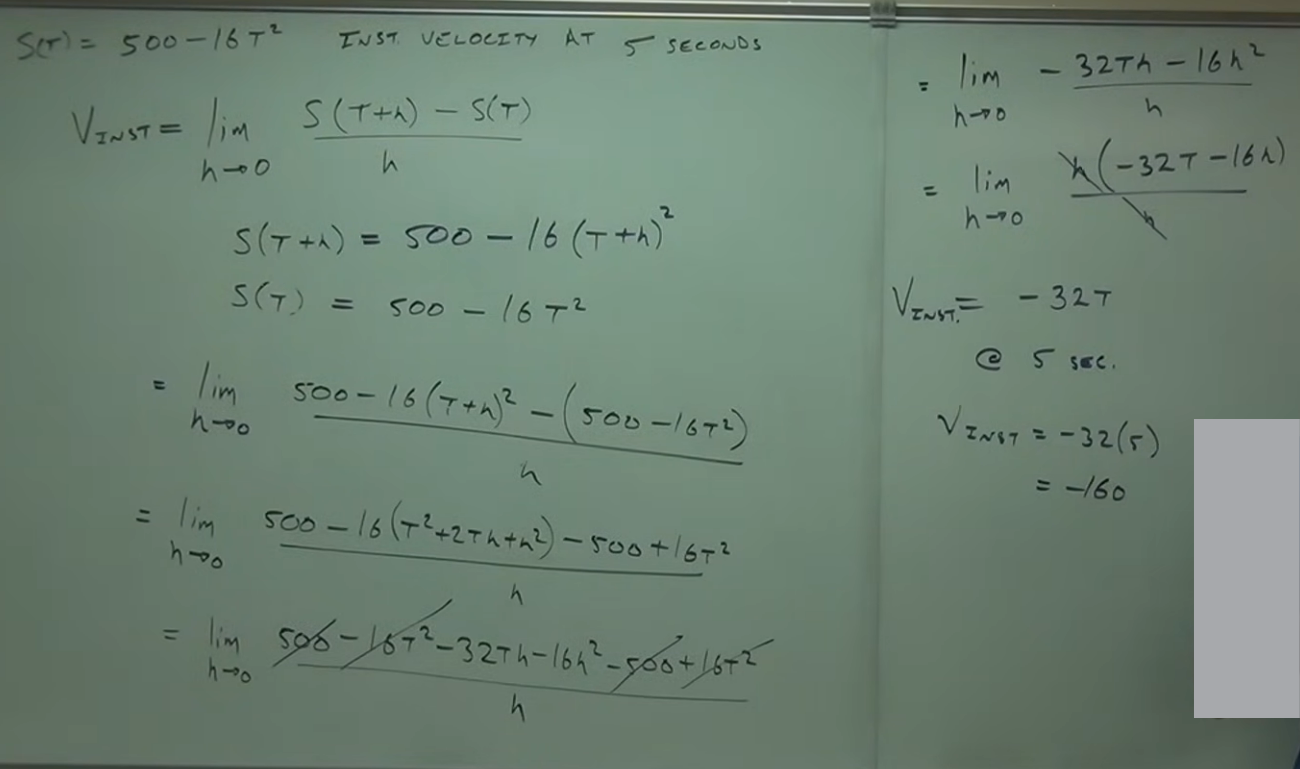 S(T) = 500 - 16T² INST. VELOCITY AT 5 SECONDS
V_INST = lim h→0 (S(T+h) - S(T)) / h
S(T+h) = 500 - 16(T+h)²
S(T) = 500 - 16T²
= lim h→0 (500 - 16(T+h)² - (500 - 16T²)) / h
= lim h→0 (500 - 16(T²+2Th+h²) - 500 + 16T²) / h
= lim h→0 (500 - 16T² - 32Th - 16h² - 500 + 16T²) / h
= lim h→0 (-32Th - 16h²) / h
= lim h→0 h(-32T - 16h) / h
V_INST. = -32T
@ 5 SEC.
V_INST = -32(5)
= -160